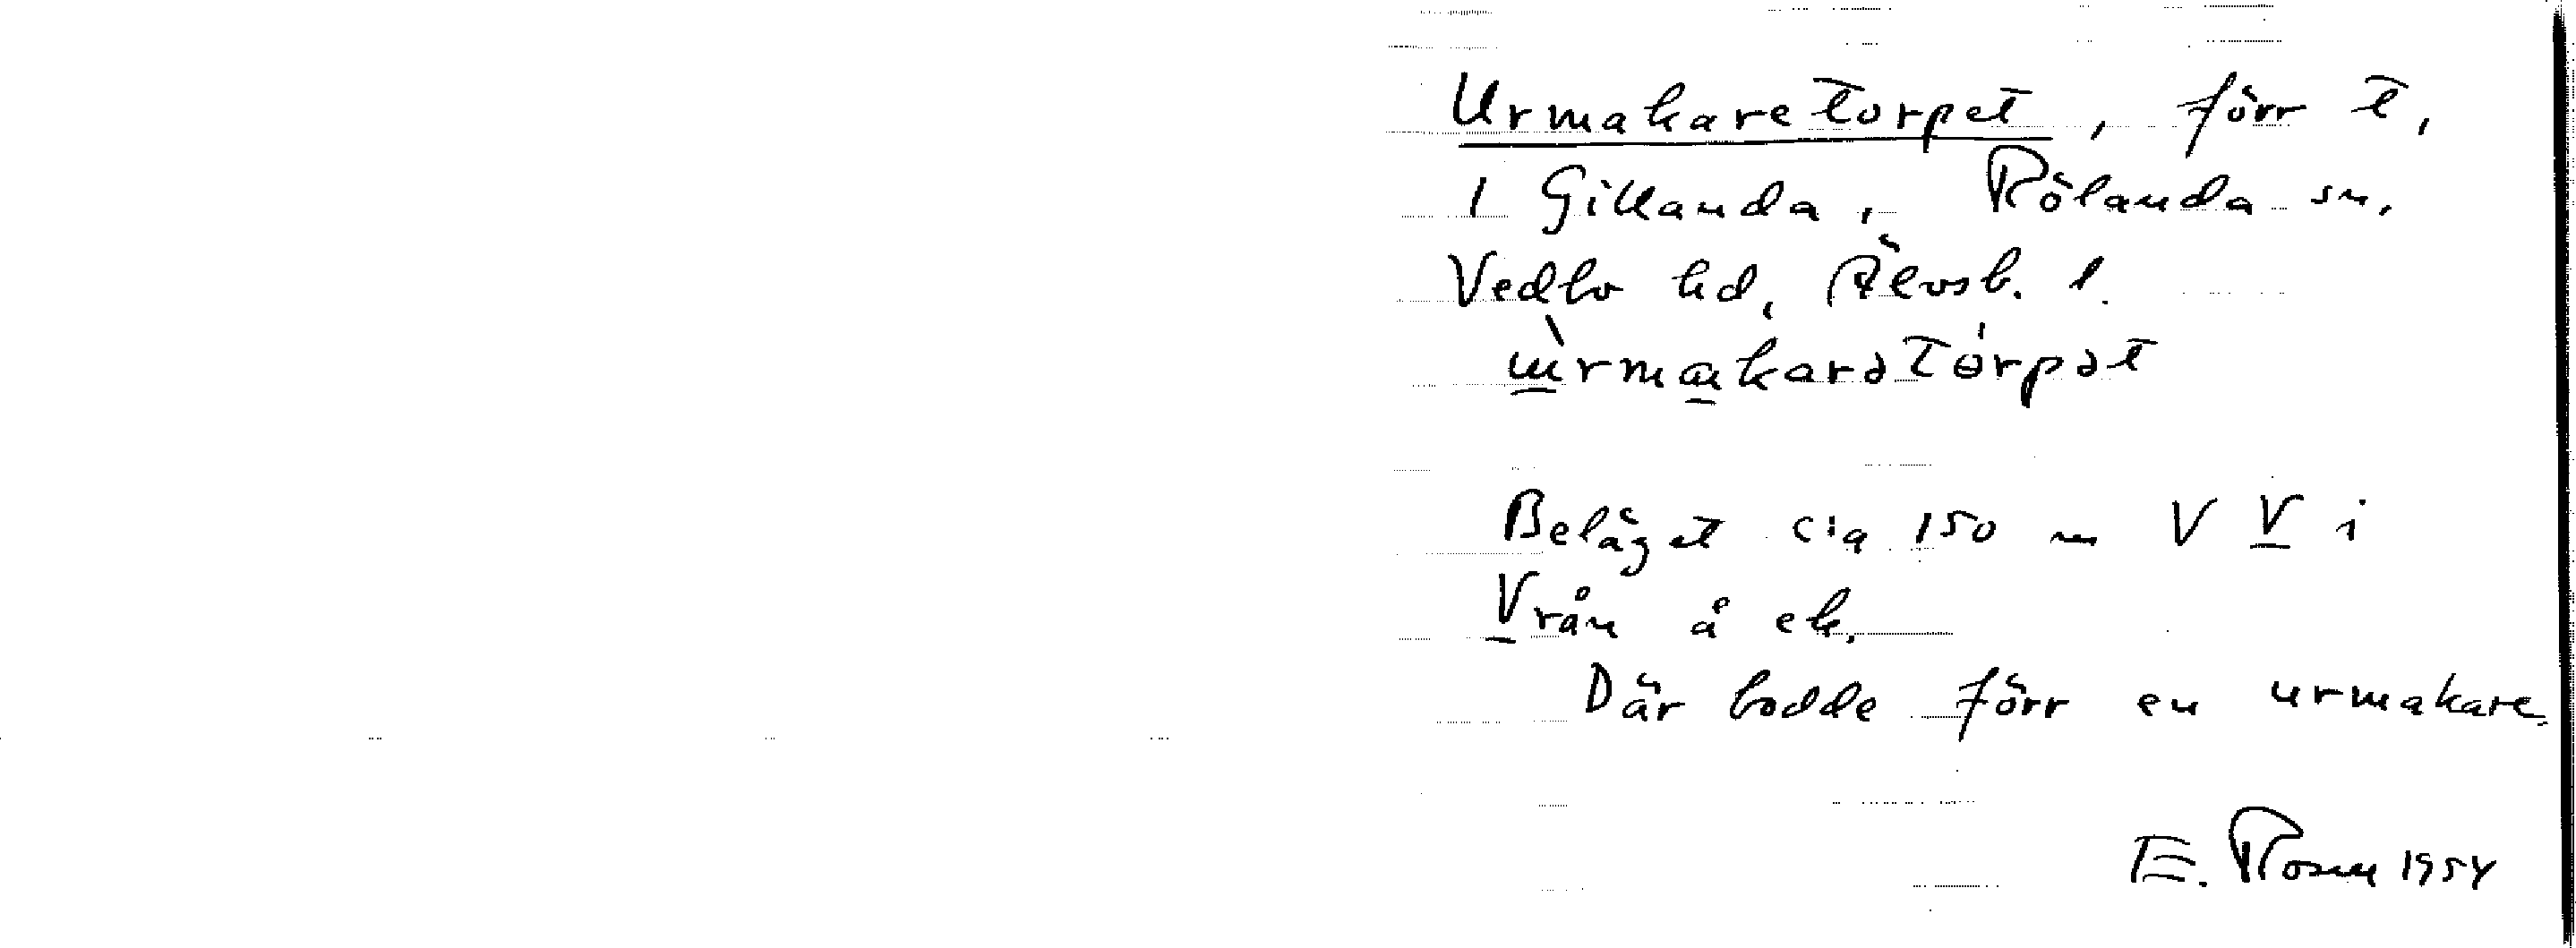 Urmakaretorpet, förr t,
1 Gillanda, Rölanda sn.
Vedbo hd, Älvsb. l.
ɯ̀rmakarətórpət
Beläget c:a 150 m V V i
Vrån å ek.
Där bodde förr en urmakare.
E. Rosen 1954